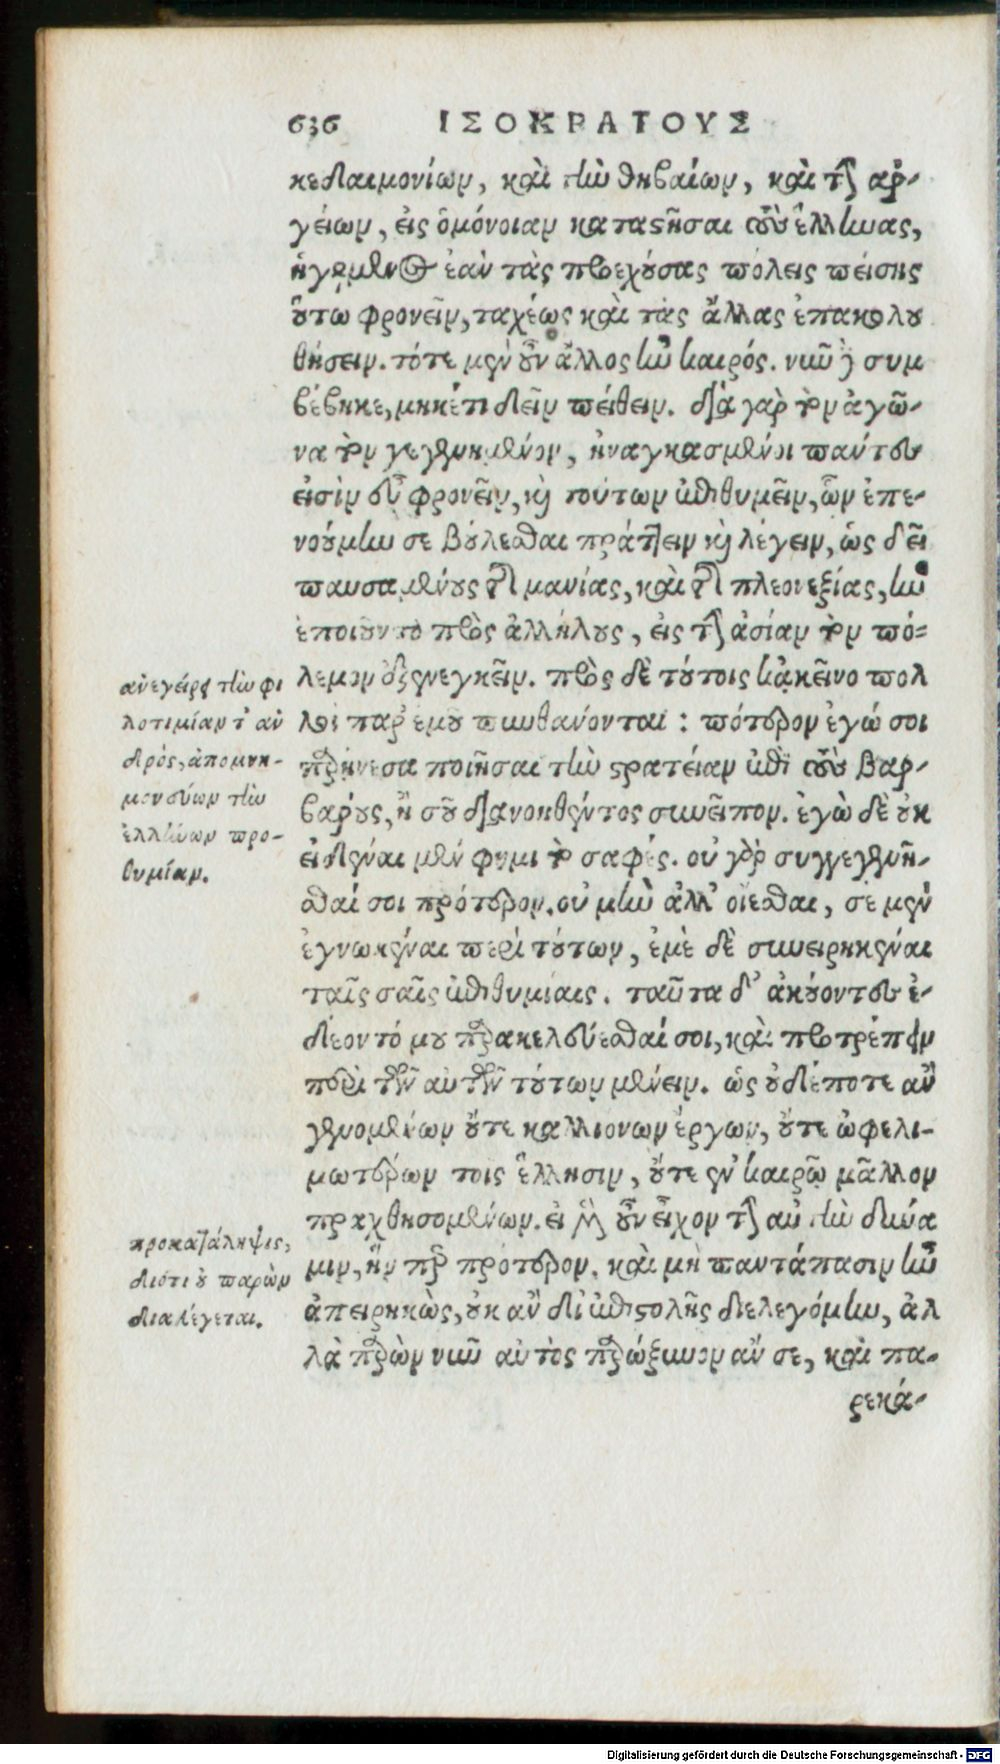 636 ΙΣΟΚΡΑΤΟΥΣ
κεδαιμονίων, καὶ τὴν θηβαίων, καὶ τὴν ἀρ-
γείων, εἰς ὁμόνοιαν καταστῆσαι τοὺς ἕλληνας,
ἡγούμενος ἐὰν τὰς προεχούσας πόλεις πείσῃς
οὕτω φρονεῖν, ταχέως καὶ τὰς ἄλλας ἐπακολου
θήσειν. τότε μὲν οὖν ἄλλος ἦν καιρός. νῦν δὲ συμ
βέβηκε, μηκέτι δεῖν πείθειν. διὰ γὰρ τὸν ἀγῶ-
να τὸν γεγενημένον, ἠναγκασμένοι πάντες
εἰσὶν εὖ φρονεῖν, καὶ τούτων ἐπιθυμεῖν, ὧν ἐπε-
νούμην σε βούλεσθαι πράττειν καὶ λέγειν, ὡς δεῖ
παυσαμένους τῆς μανίας, καὶ τῆς πλεονεξίας, ἣν
ἐποιοῦντο πρὸς ἀλλήλους, εἰς τὴν ἀσίαν τὸν πό-
λεμον ἐξενεγκεῖν. πρὸς δὲ τούτοις κἀκεῖνο πολ
λοὶ παρ' ἐμοῦ πυνθάνονται: πότερον ἐγώ σοι
παρήνεσα ποιῆσαι τὴν στρατείαν ἐπὶ τοὺς βαρ-
βάρους, ἢ σοῦ διανοηθέντος συνεῖπον. ἐγὼ δὲ οὐκ
εἰδέναι μέν φημι τὸ σαφές. οὐ γὰρ συγγεγενῆ-
σθαί σοι πρότερον. οὐ μὴν ἀλλ' οἴεσθαι, σε μὲν
ἐγνωκέναι περὶ τούτων, ἐμὲ δὲ συνειρηκέναι
ταῖς σαῖς ἐπιθυμίαις. ταῦτα δ' ἀκούοντες ἐ-
δέοντό μου παρακελεύεσθαί σοι, καὶ προτρέπειν
περὶ τῶν αὐτῶν τούτων μένειν. ὡς οὐδέποτε ἂν
γενομένων οὔτε καλλιόνων ἔργων, οὔτε ὠφελι-
μωτέρων τοῖς ἕλλησιν, οὔτε ἐν καιρῷ μᾶλλον
πραχθησομένων. εἰ μὲν οὖν εἶχον τὴν αὐτὴν δύνα
μιν, ἥνπερ πρότερον, καὶ μὴ παντάπασιν ἦν
ἀπειρηκὼς, οὐκ ἂν δι' ἐπιστολῆς διελεγόμην, ἀλ
λὰ παρὼν νῦν αὐτὸς παρώξυνον ἄν σε, καὶ πα-
ρεκά-
ἀνεγείρει τὴν φι
λοτιμίαν τοῦ ἀν
δρός, ἀπομνη-
μονεύων τὴν
ἑλλήνων προ-
θυμίαν.
προκατάληψις,
διότι οὐ παρὼν
διαλέγεται.
Digitalisierung gefördert durch die Deutsche Forschungsgemeinschaft - DFG